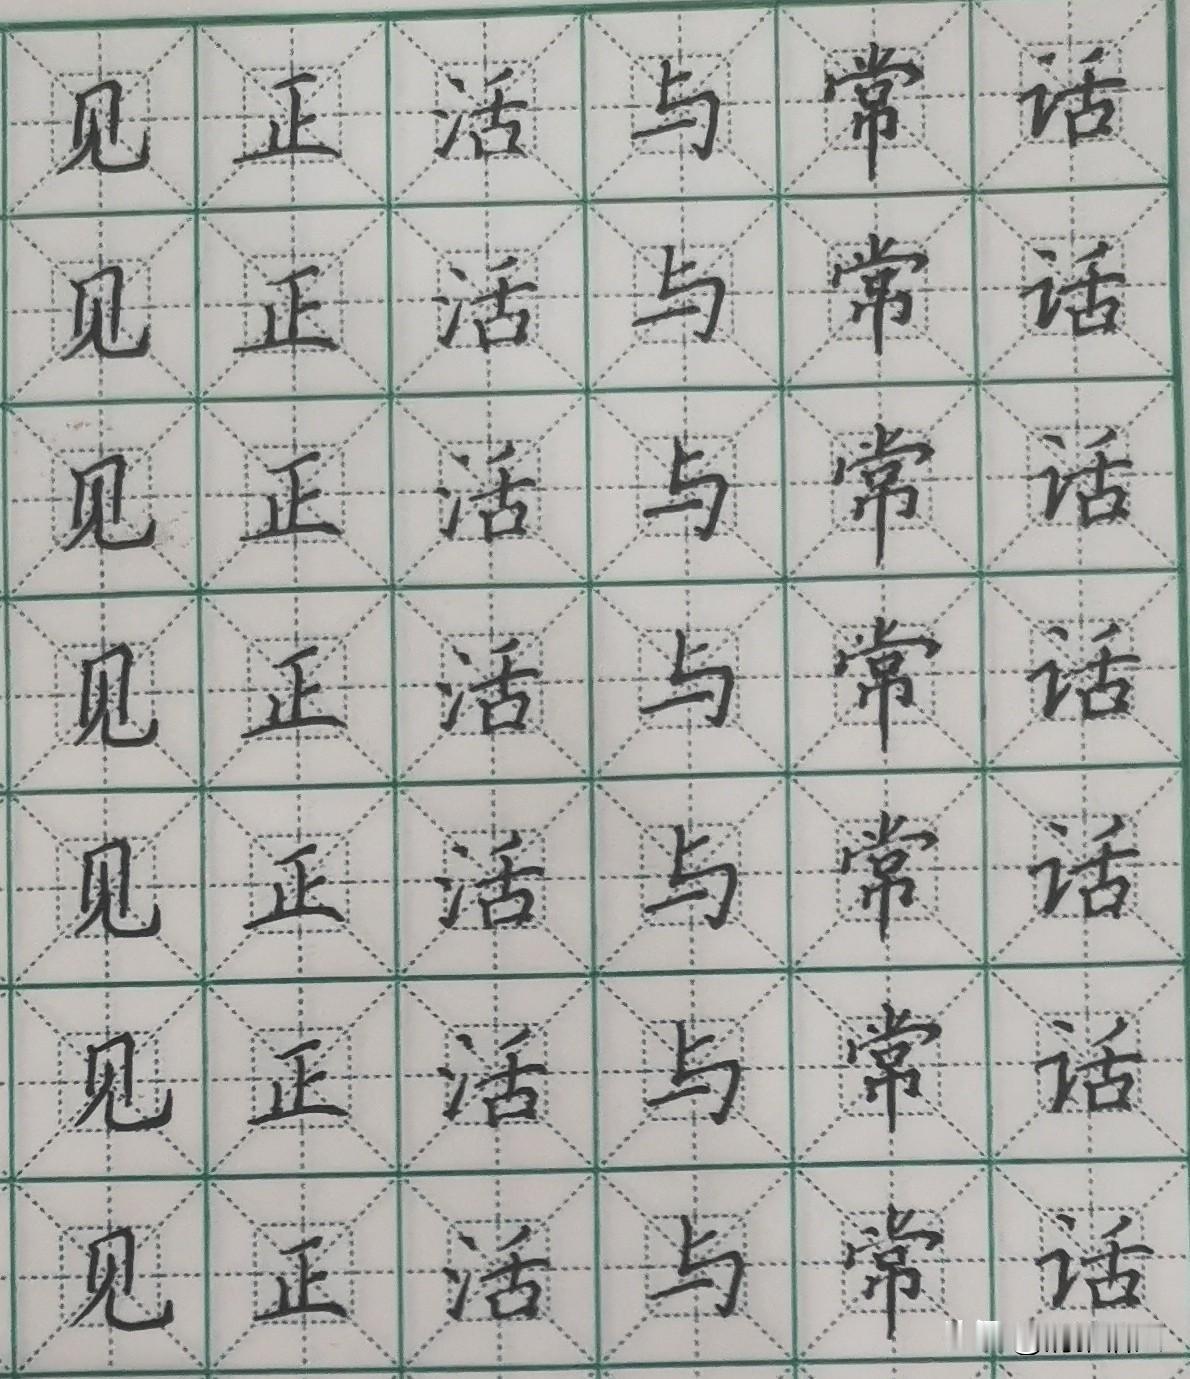 见正活与常话
见正活与常话
见正活与常话
见正活与常话
见正活与常话
见正活与常话
见正活与常话